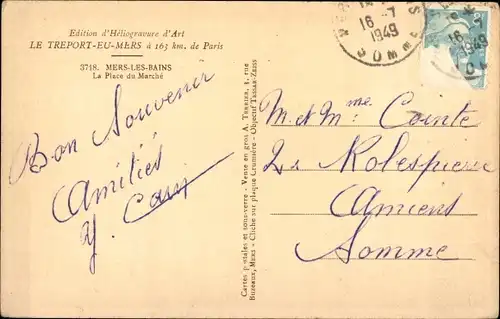 Edition d'Héliogravure d'Art
LE TREPORT-EU-MERS à 163 km. de Paris
3718. MERS-LES-BAINS
La Place du Marché
Bon Souvenir
Amitiés
Y.
Cartes postales et souv-verre - Vente en gros A. TERRIER, 1, rue
Buzeaux, MERS - Cliché sur plaque Grumière - Objectif TESSAR-ZEISS
16 -7
1949
SOMME
16 -7
1949
M et Mme Cointe
Rolespierre
Amiens
Somme